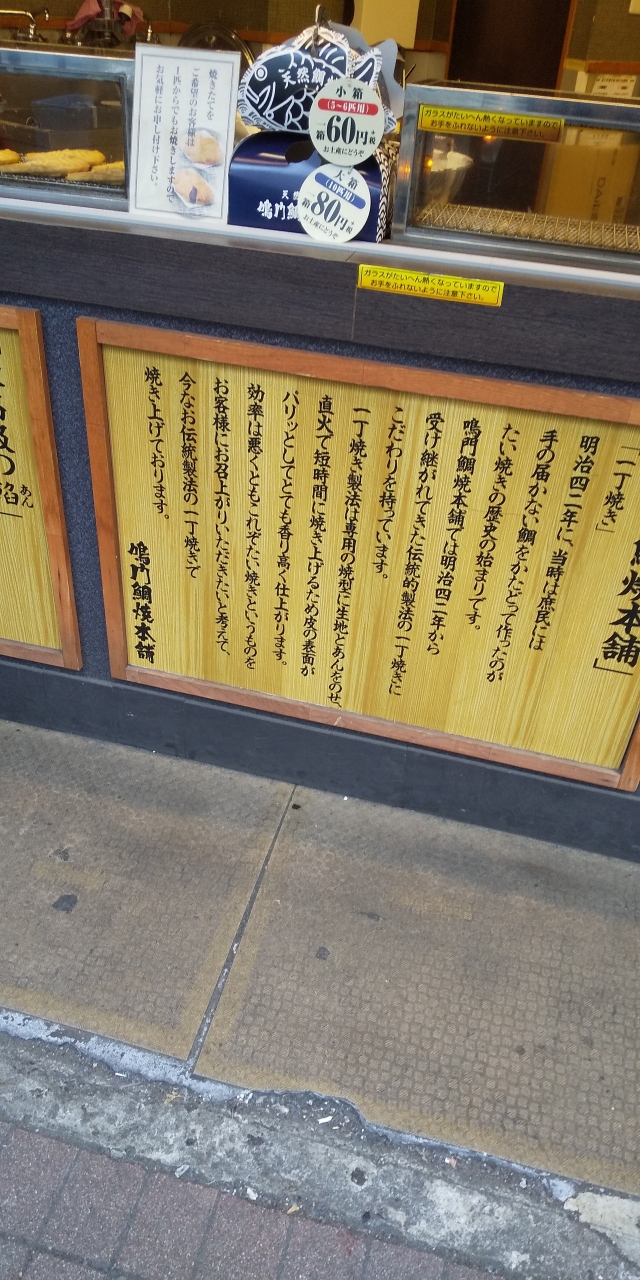 焼きたてを
ご希望のお客様は
1匹からでもお焼きしますので
お気軽にお申し付け下さい。
天然鯛
小箱
(5~6匹用)
一箱60円+税
お土産にどうぞ
大箱
(10匹用)
一箱80円+税
お土産にどうぞ
鳴門鯛
ガラスがたいへん熱くなっていますので
お手をふれないように注意下さい。
ガラスがたいへん熱くなっていますので
お手をふれないように注意下さい。
焼本舗」
「一丁焼き」
明治四二年に、当時は庶民には
手の届かない鯛をかたどって作ったのが
たい焼きの歴史の始まりです。
鳴門鯛焼本舗では明治四二年から
受け継がれてきた伝統的製法の一丁焼きに
こだわりを持っています。
一丁焼き製法は専用の焼型に生地とあんをのせ、
直火で短時間に焼き上げるため皮の表面が
パリッとしてとても香り高く仕上がります。
効率は悪くともこれぞたい焼きというものを
お客様にお召上がりいただきたいと考えて、
今なお伝統製法の一丁焼きで
焼き上げております。
鳴門鯛焼本舗
級の餡
あん